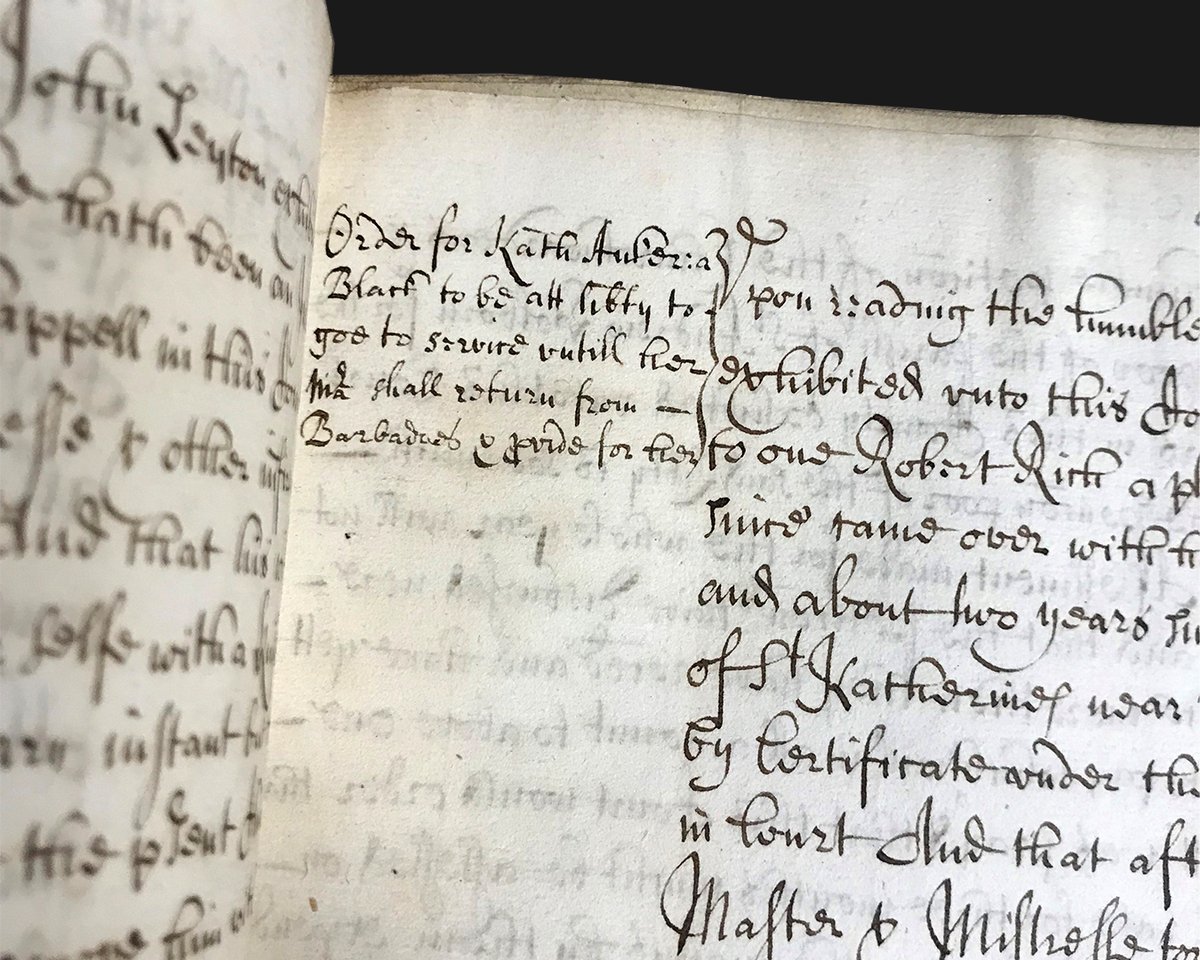 John Leyton
hath been an
Cappell in this
& other
And that his
selfe with a
instant
the p'sent
him
Order for Kath Auker: a
Black to be att lib'ty to
goe to service vntill her
Mr. shall return from —
Barbadoes & p'vide for her
Vpon reading the humble
exhibited vnto this Co
to one Robert Rich a pl
since came over with h
and about two years si
of St Katherines near
by Certificate vnder the
in Court And that aft
Master & Mistresse to